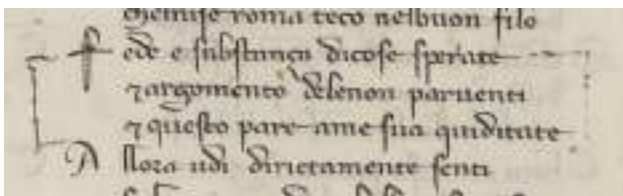 che mise roma teco nel buon filo
fede e substança di cose sperate
et argomento dele non parventi
et questo pare ame sua quiditate
Allora udi dirictamente senti